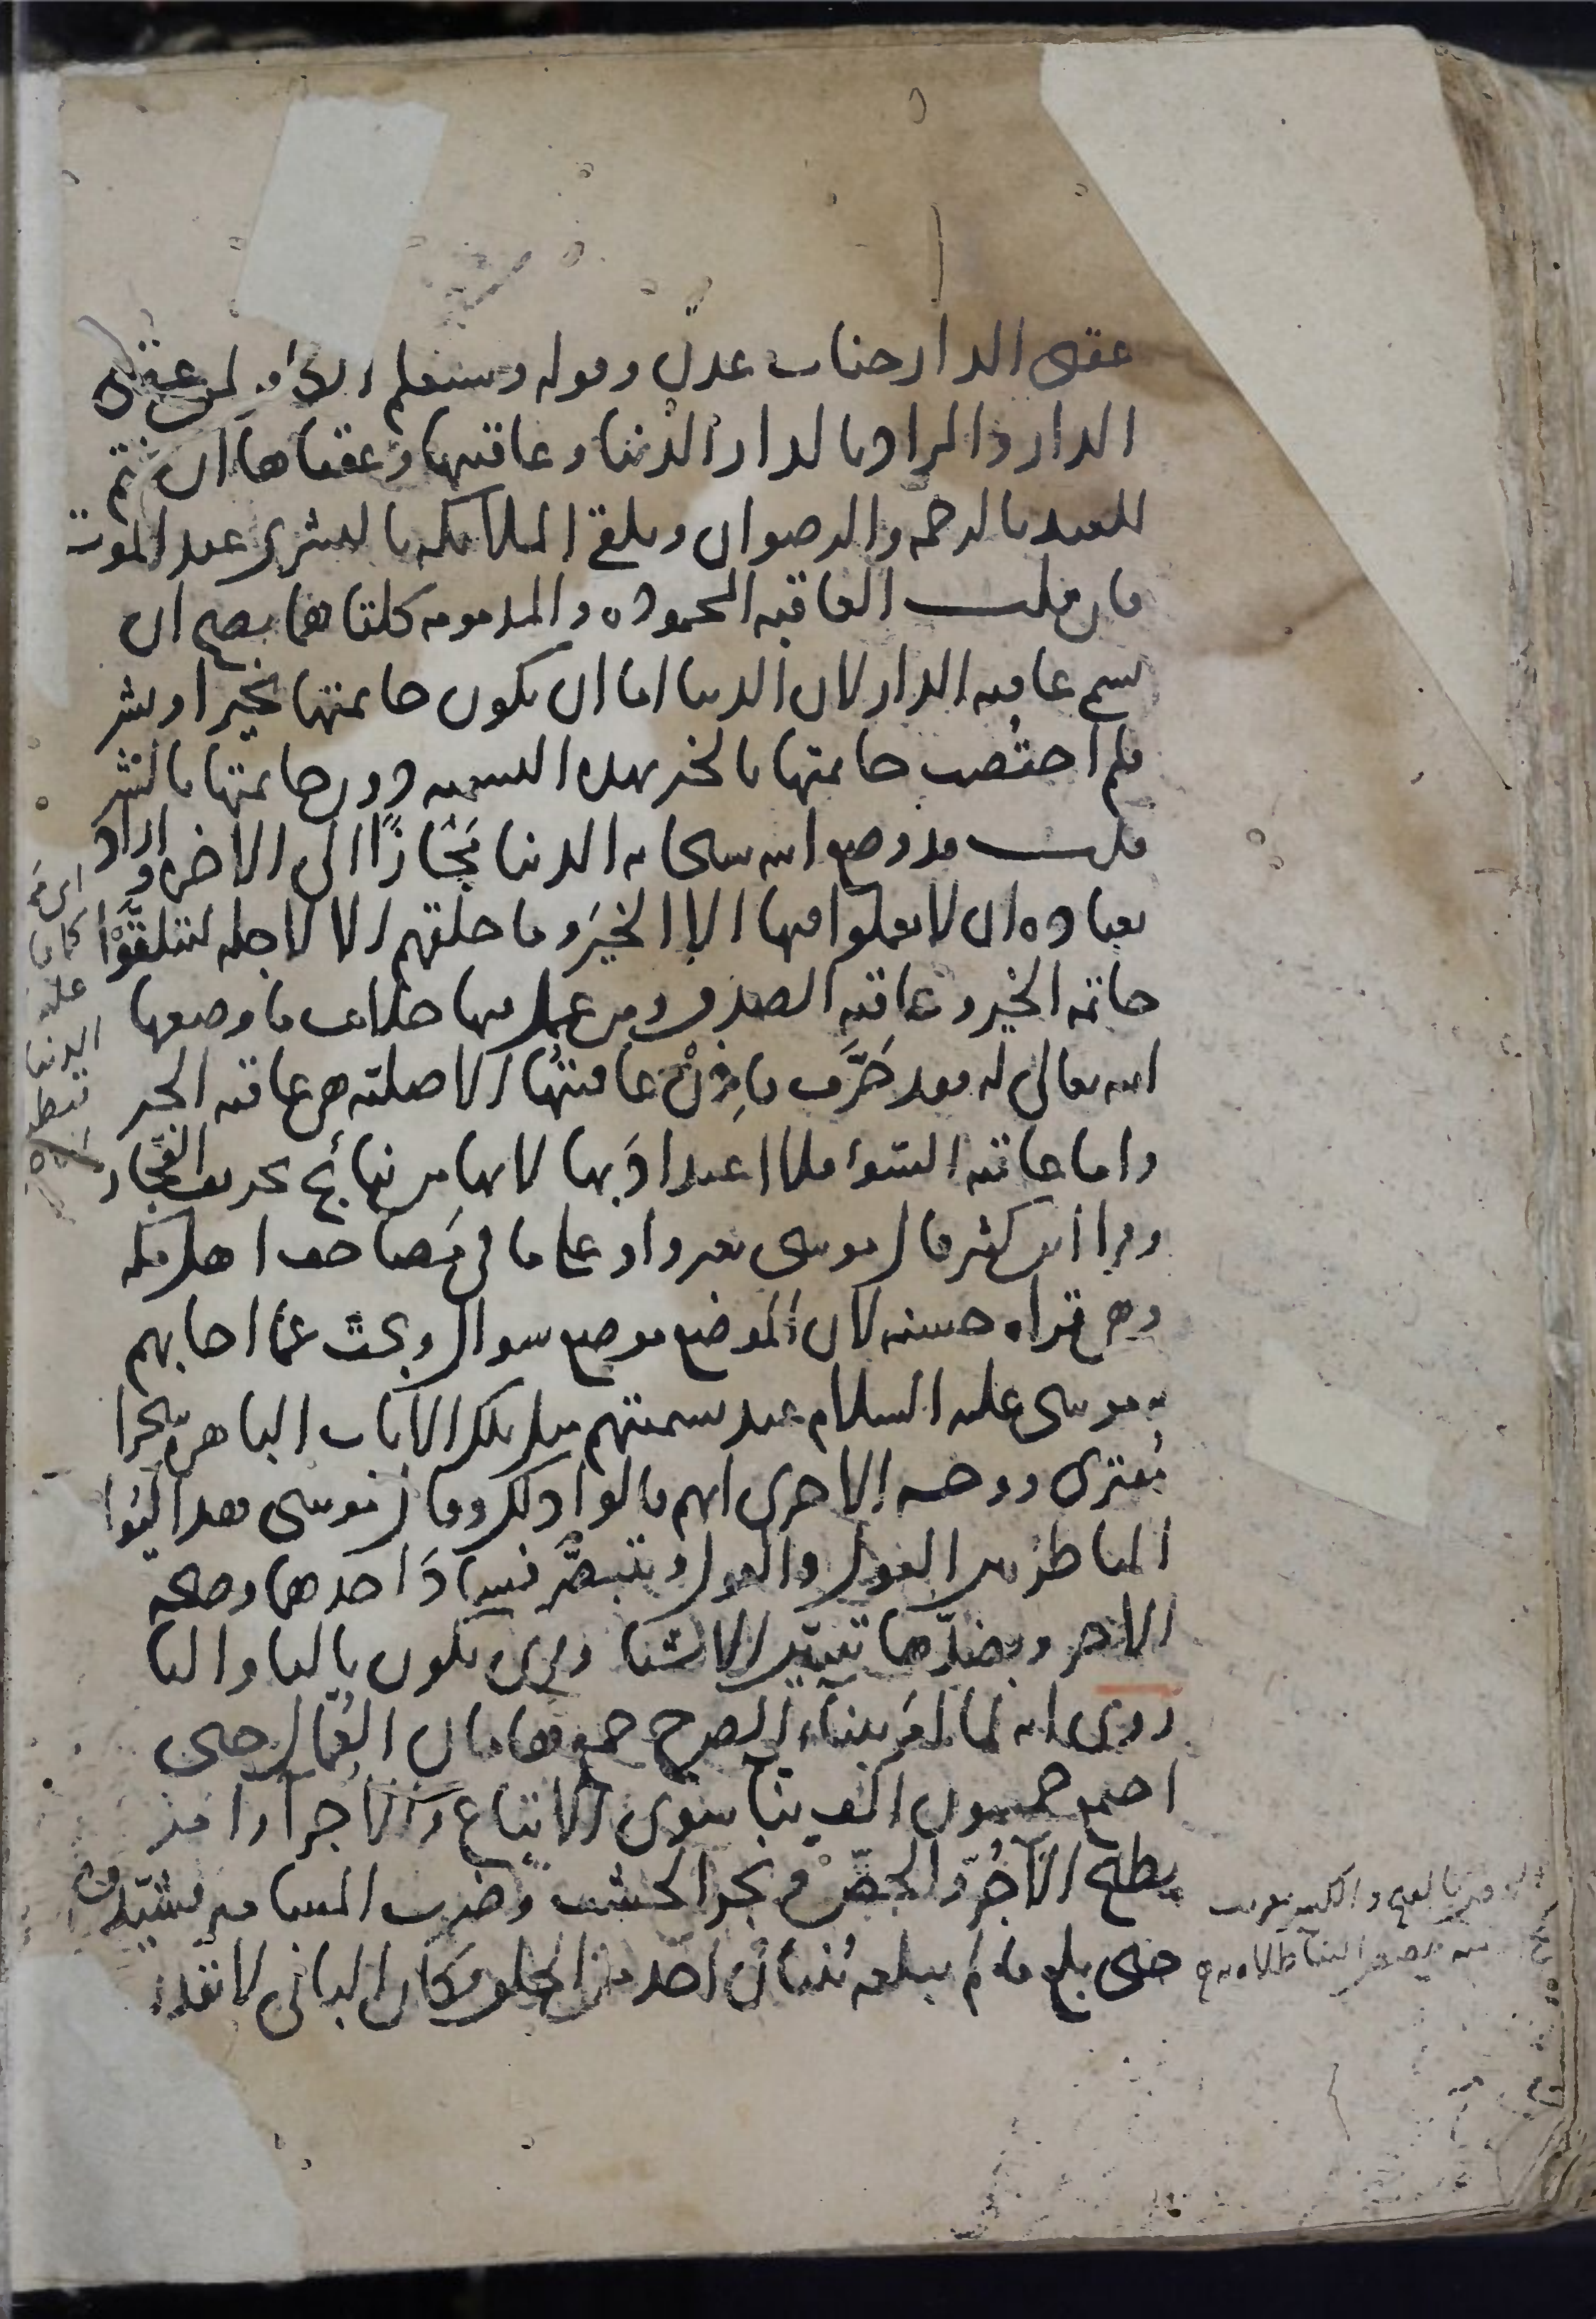 عقبى الدار جنات عدن وقوله وسيعلم الكافر لمن عقبى
الدار والمراد بالدار الدنيا وعاقبتها وعقباها ان يختم
للعبد بالرحمه والرضوان وتلقى الملائكه بالبشرى عند الموت
فان قلت العاقبه المحموده والمذمومه كلتاهما يصح ان
تسمى عاقبه الدار لان الدنيا اما ان يكون خاتمتها بخير او بشر
فلم اختُصت خاتمتها بالخير بهذه التسميه دون خاتمتها بالشر
قلت قد وضع الله سبحانه الدنيا مَجَازًا الى الاخره واراد
بعباده ان لا يعملوا فيها الا الخيرَ وما خلقهم الا لاجله ليتلقَّوْا
خاتمه الخير وعاقبه الصدق ومن عمل فيها خلاف ما وضعها
الله تعالى له فقد حَرَّف فاِذنْ عاقبتُها الاصليّه هى عاقبه الخير
واما عاقبه السّوء فلا اعتدادَ بها لانها من نتائج تحريف الفجّار
وقرا ابن كثير قال موسى بغير واو على ما فى مَصاحف اهل مكه
وهى قراه حسنه لان الموضع موضع سوال وبحث عمّا اجابهم
به موسى عليه السلام عند تسميتهم مثل تلك الايات الباهره سحرا
مُفترى ووجه الاخرى انهم قالوا ذلك وقال موسى هذا ليُوازن
الناظر بين القول والقول ويتبصَّر فسادَ احدهما وصحه
الاخر وبضدّها تتبيّن الاشيا وقرى تكون بالتا واليا
رُوى انه لما امَر ببناء الصرح جمع هامان العُمّال حتى
اجتمع خمسون الف بنّا سوى الاتباع والاُجراء وامر
بطبخ الاٰجُرّ والجصّ ونجر الخشب وضرب المسامير فشيّدوه
حتى بلغ ما لم يبلغه بُنيانُ احد من الخلق فكان البانى لا يقدر
كانا
الدنيا